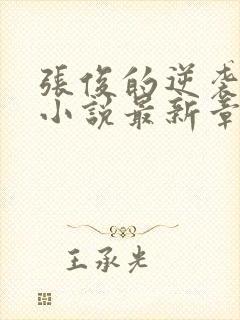 張俊的逆袭
小說最新章
王承光